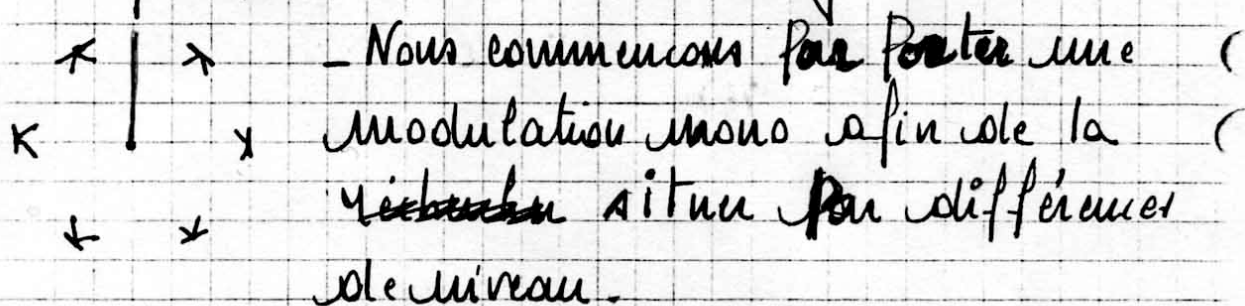 - Nous commencons par Porter une (
modulation mono afin de la (
situer par différences
de niveau.